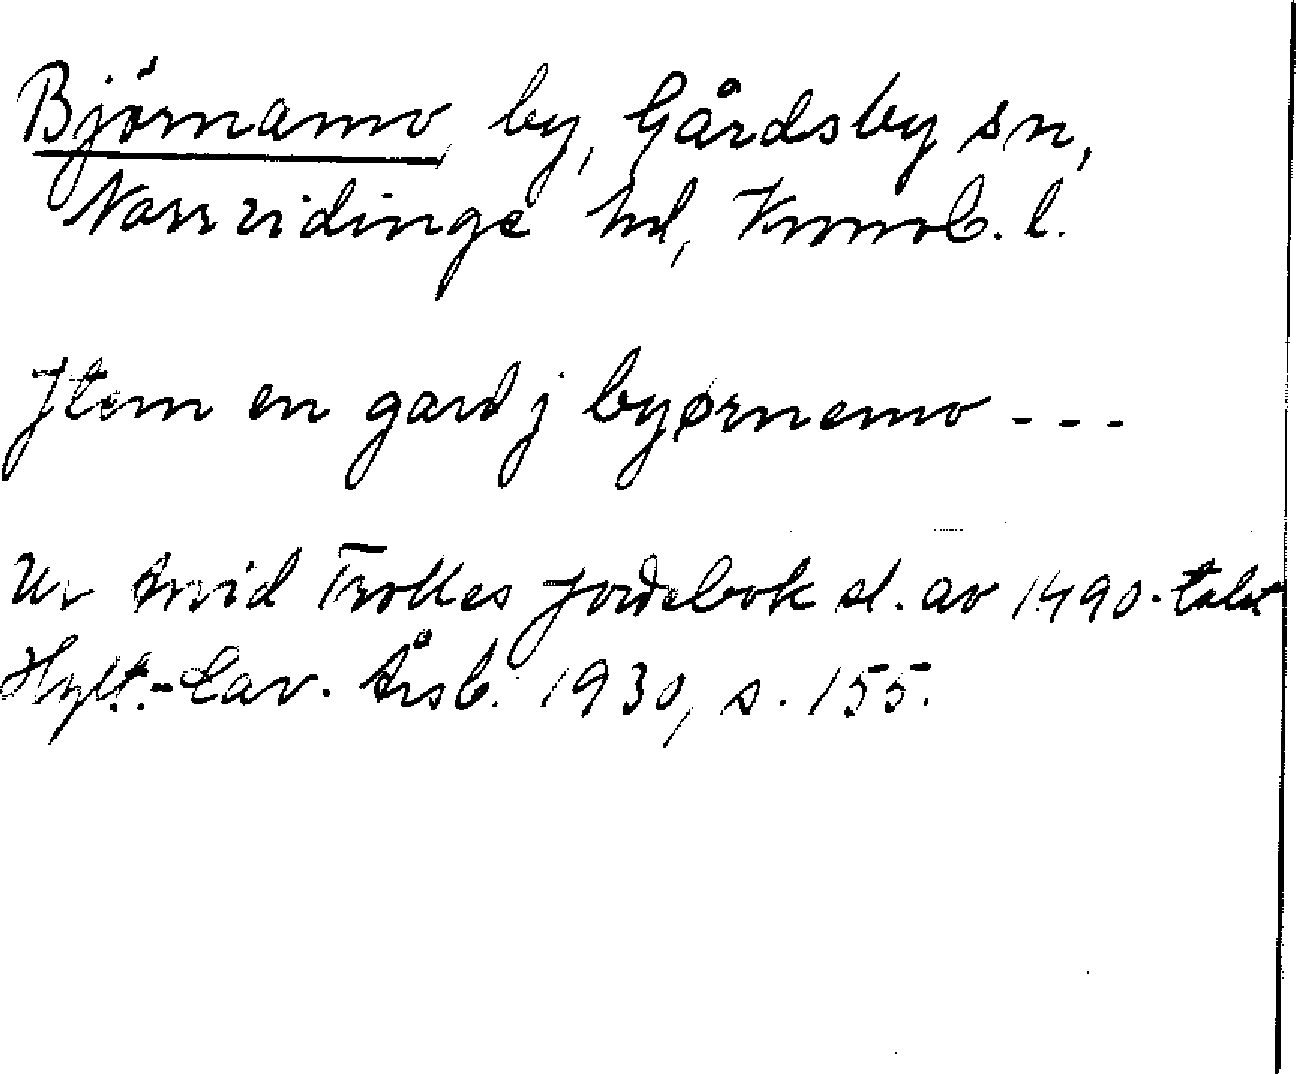 Björnamo by, Gårdsby sn,
Norrvidinge hd, Kronob. l.
Jtem en gard j byørnemo - - -
Ur Arvid Trolles jordebok sl. av 1490-talet
Hylt.-Cav. Årsb. 1930, s. 155.